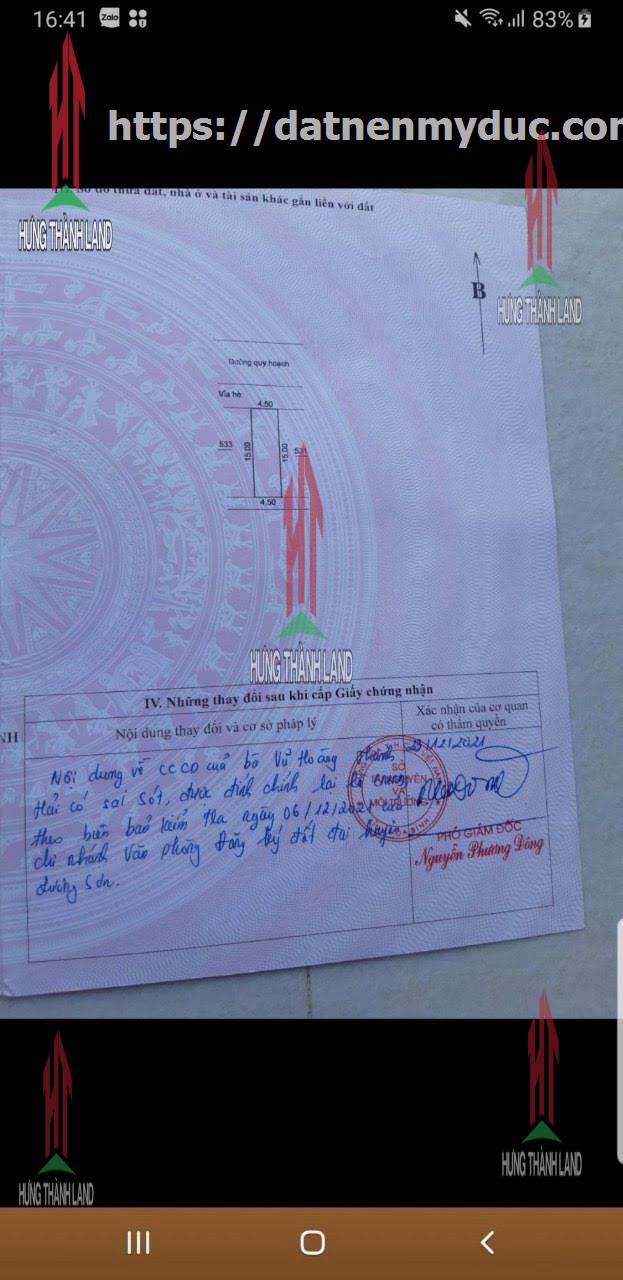 16:41 Zalo 83%
https://datnenmyduc.com
Sơ đồ thửa đất, nhà ở và tài sản khác gắn liền với đất
HƯNG THÀNH LAND
HƯNG THÀNH LAND
B
Đường quy hoạch
Vỉa hè
4.50
533
15.00
15.00
531
4.50
HƯNG THÀNH LAND
IV. Những thay đổi sau khi cấp Giấy chứng nhận
NH
Nội dung thay đổi và cơ sở pháp lý
Xác nhận của cơ quan
có thẩm quyền
Nội dung về CCCD của bà Vũ Hoàng Thanh
Hải có sai sót, được đính chính lại
theo biên bản kiểm tra ngày 06/12/2021 của
chi nhánh Văn phòng Đăng ký đất đai huyện
Lương Sơn.
23/12/2021
SỞ
TÀI NGUYÊN
VÀ
MÔI TRƯỜNG
PHÓ GIÁM ĐỐC
Nguyễn Phương Đông
HƯNG THÀNH LAND
HƯNG THÀNH LAND